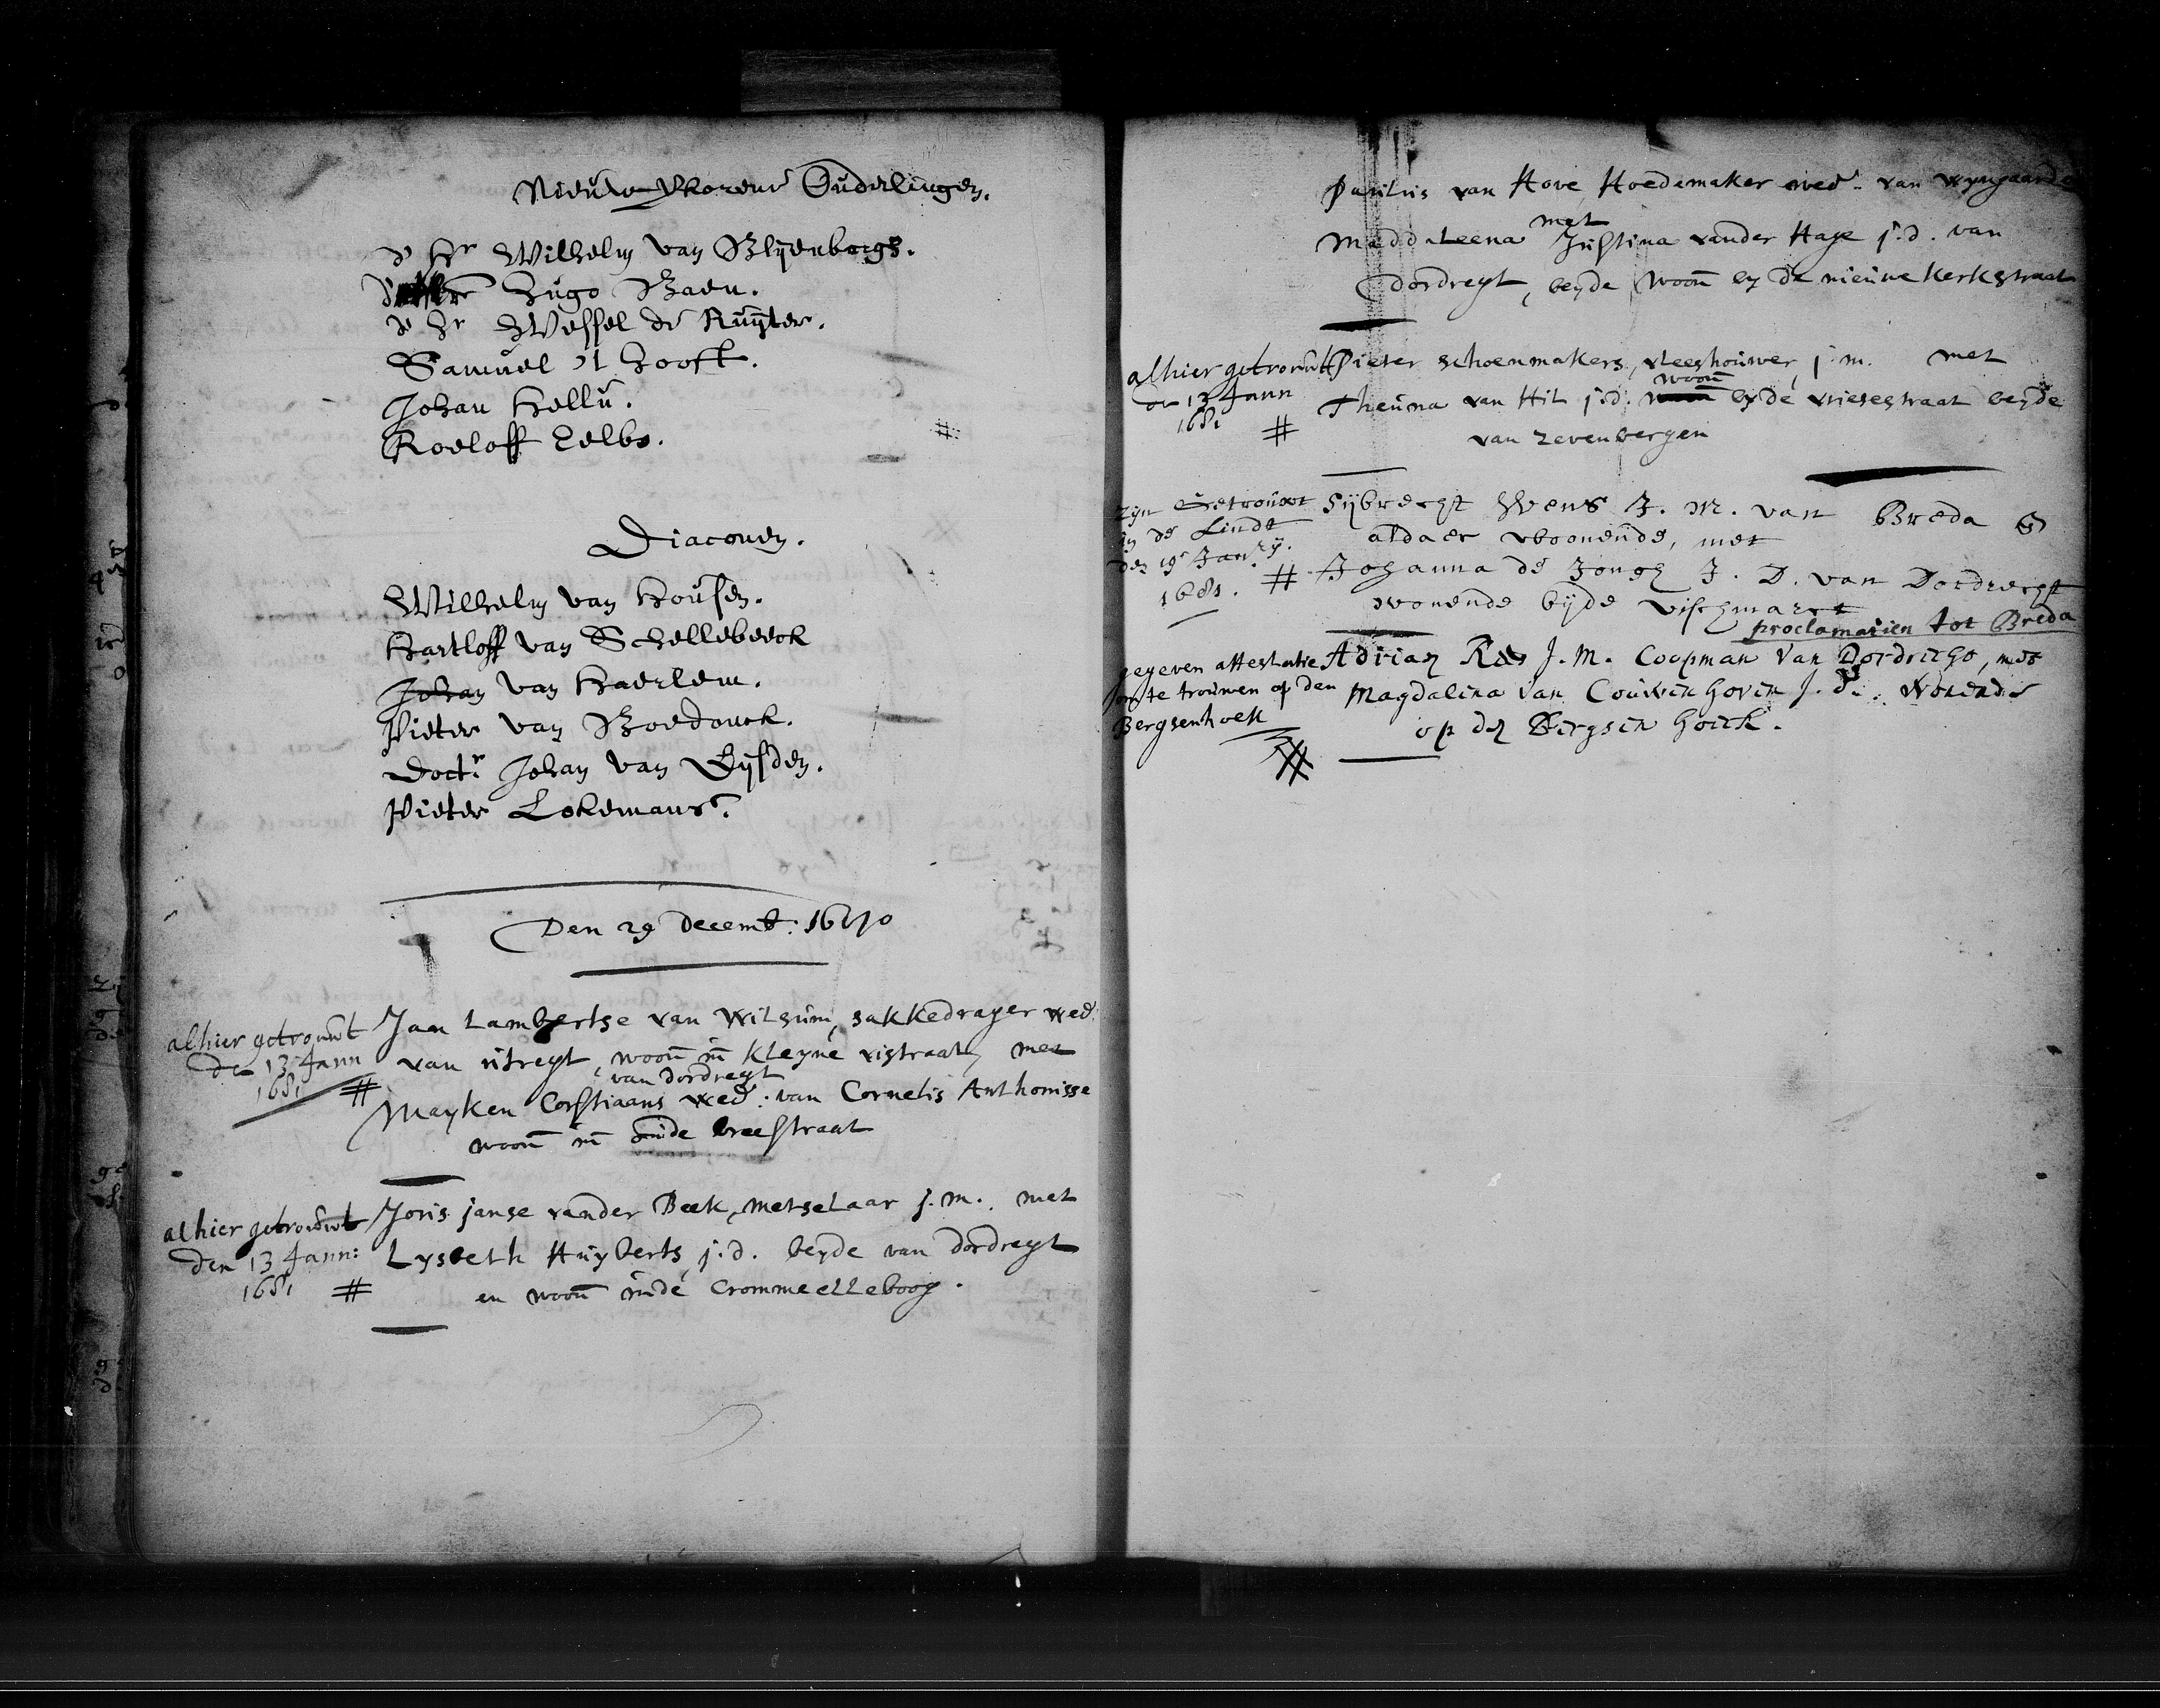 Nieuw verkorene Ouderlingen.
d Hr Wilhelm van Blijenborgh.
Hugo Baen.
d Hr Wessel de Ruyter.
Samuel 't Hooft.
Johan Hellu.
Roeloff Eelbo.
Diaconen.
Wilhelm van Housen.
Hartloff van Schellebeeck
Johan van Haerlem.
Pieter van Boedonck.
Doctr Johan van Eijsden.
Pieter Lokemans.
Den 29 Decemb: 1680
alhier getrouwt
den 13 Jann
1681 #
Jan Lambertse van Wilsum, sakkedrager wed:
van utregt, woon in Kleyne vistraat, met
van dordregt
Mayken Corstiaans wed: van Cornelis Anthonisse
woon in de breestraat
alhier getrouwt
den 13 Jann:
1681 #
Joris janse vander Beek, metselaar j.m. met
Lysbeth Huyberts j.d. beyde van dordregt
en woon inde Crommeelleboog.
Paulus van Hove, Hoedemaker wed: van wyngaarde
met
Maddaleena Justina vander Hage j.d. van
dordregt, beyde woon by de nieuwe kerkstraat
alhier getrouwt
den 13 Jann
1681 #
Pieter schoenmakers, vleeshouwer, j.m. met
woon
Theuna van Hil j.d. by de vriesestraat beyde
van zevenbergen
zyn Getrouwt
in de Lindt
den 19 Janry.
1681. #
Sijbrecht Swens J. M. van Breda &
aldaer woonende, met
Johanna de Jongh J. D. van Dordrecht
wonende bijde vischmarct
proclamatien tot Breda
gegeven attestatie
om te trouwen op den
Bergsenhoek
Adrian Ras J. M. Coopman van Dordrecht, met
Magdalena van Couwenhoven J. d. wonende
op den Bergsen hoeck.